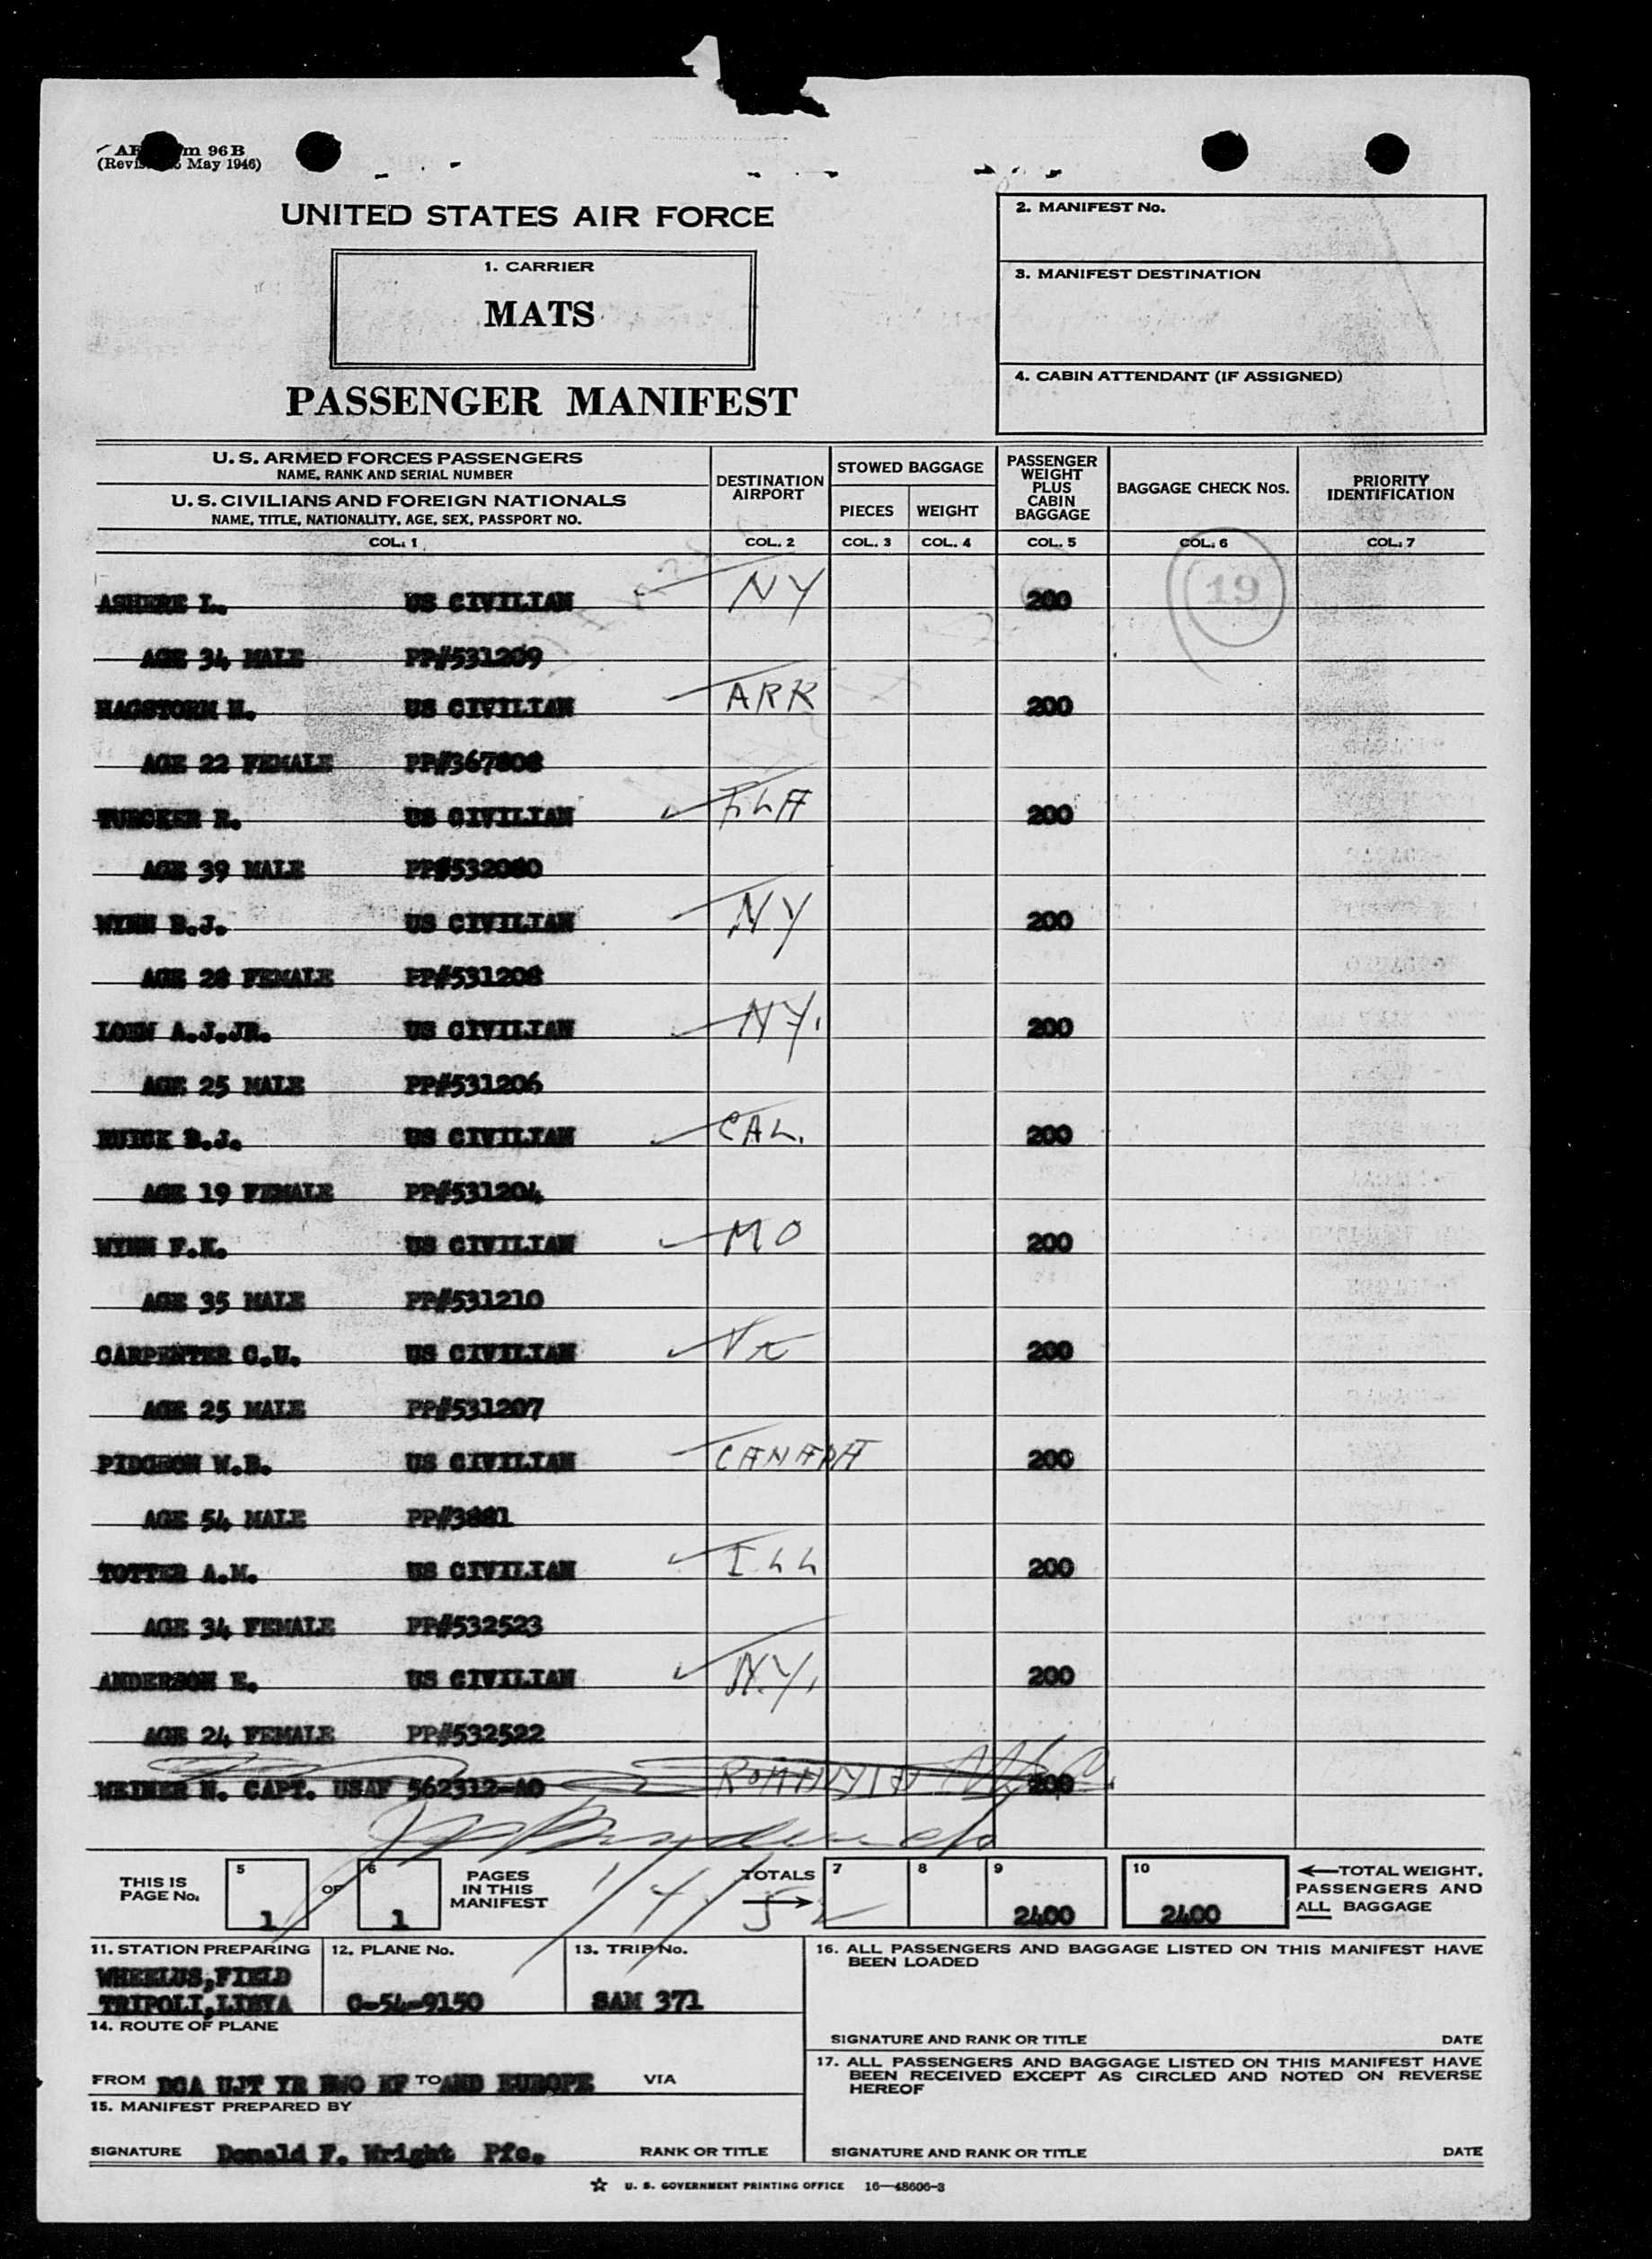 m 96 B
May 1946)
UNITED STATES AIR FORCE
1. CARRIER
MATS
PASSENGER MANIFEST
2. MANIFEST No.
3. MANIFEST DESTINATION
4. CABIN ATTENDANT (IF ASSIGNED)
U. S. ARMED FORCES PASSENGERS
NAME, RANK AND SERIAL NUMBER
U. S. CIVILIANS AND FOREIGN NATIONALS
NAME, TITLE, NATIONALITY, AGE, SEX, PASSPORT NO.
DESTINATION AIRPORT
STOWED BAGGAGE
PIECES WEIGHT
PASSENGER WEIGHT PLUS CABIN BAGGAGE
BAGGAGE CHECK Nos.
PRIORITY IDENTIFICATION
COL. 1 COL. 2 COL. 3 COL. 4 COL. 5 COL. 6 COL. 7
ASHERE L. US CIVILIAN NY 200 19
AGE 34 MALE PP#531209
HAGSTORM H. US CIVILIAN ARK 200
AGE 22 FEMALE PP#367808
TURCKER R. US CIVILIAN FLA 200
AGE 39 MALE PP#532080
WYNN B.J. US CIVILIAN NY 200
AGE 28 FEMALE PP#531208
LOEW A.J.JR. US CIVILIAN NY. 200
AGE 25 MALE PP#531206
HUICK B.J. US CIVILIAN CAL. 200
AGE 19 FEMALE PP#531204
WYNN F.K. US CIVILIAN MO 200
AGE 35 MALE PP#531210
CARPENTER C.U. US CIVILIAN 200
AGE 25 MALE PP#531207
PIDGEON W.B. US CIVILIAN CANADA 200
AGE 54 MALE PP#3881
TOTTER A.M. US CIVILIAN ILL 200
AGE 34 FEMALE PP#532523
ANDERSON E. US CIVILIAN N.Y. 200
AGE 24 FEMALE PP#532522
WEINER N. CAPT. USAF 562312-AO 200
THIS IS PAGE No. 5 1 OF 6 1 PAGES IN THIS MANIFEST
1/4/52
TOTALS 7 8 9 2400 10 2400
TOTAL WEIGHT, PASSENGERS AND ALL BAGGAGE
11. STATION PREPARING
WHEELUS,FIELD
TRIPOLI,LIBYA
12. PLANE No.
C-54-9150
13. TRIP No.
SAM 371
14. ROUTE OF PLANE
FROM DCA UJT YR HWO EF TO AND EUROPE VIA
15. MANIFEST PREPARED BY
SIGNATURE Donald F. Wright Pfc. RANK OR TITLE
16. ALL PASSENGERS AND BAGGAGE LISTED ON THIS MANIFEST HAVE
BEEN LOADED
SIGNATURE AND RANK OR TITLE DATE
17. ALL PASSENGERS AND BAGGAGE LISTED ON THIS MANIFEST HAVE
BEEN RECEIVED EXCEPT AS CIRCLED AND NOTED ON REVERSE
HEREOF
SIGNATURE AND RANK OR TITLE DATE
U. S. GOVERNMENT PRINTING OFFICE 16—48606-3